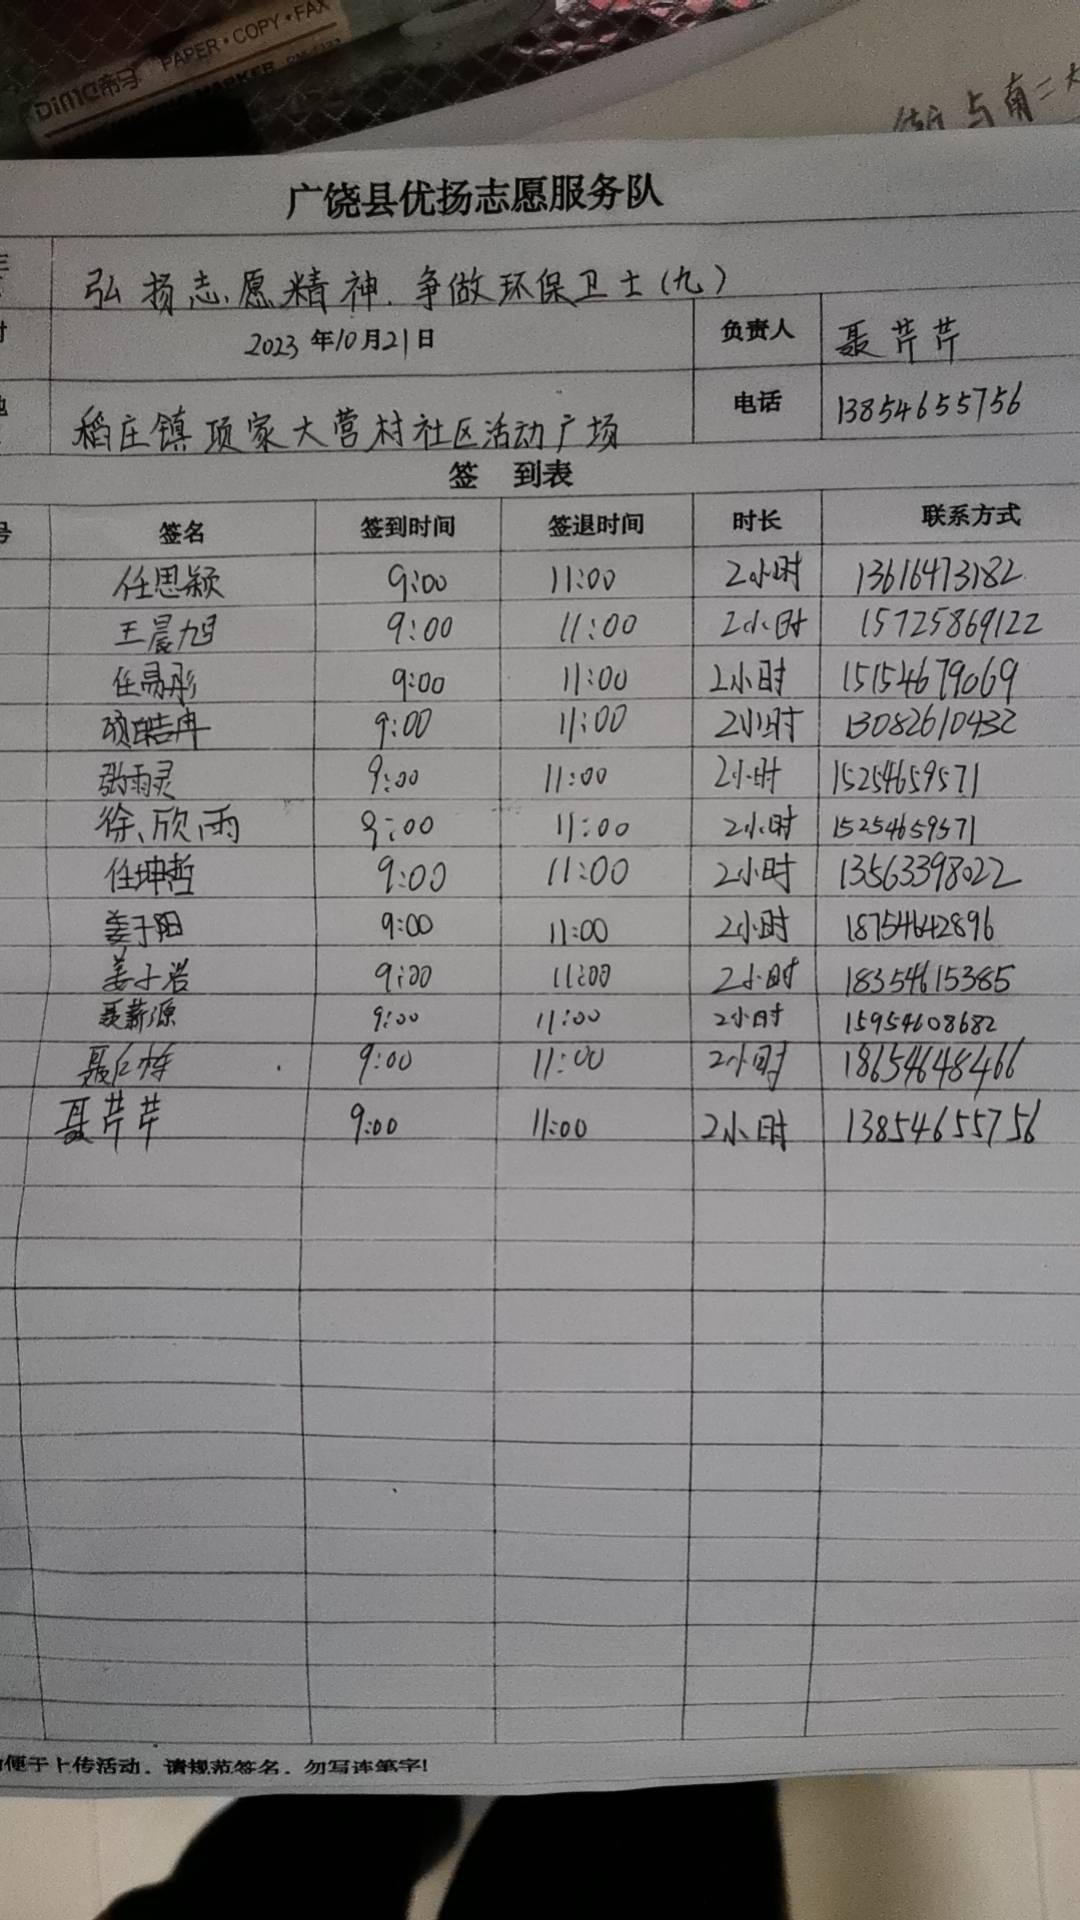 Dimo帝马 PAPER·COPY·FAX
MARKER
街与南二大
广饶县优扬志愿服务队
弘扬志愿精神.争做环保卫士(九)
2023年10月21日 负责人 聂芹芹
稻庄镇项家大营村社区活动广场 电话 13854655756
签 到表
号 签名 签到时间 签退时间 时长 联系方式
任思颖 9:00 11:00 2小时 13616473182
王晨旭 9:00 11:00 2小时 15725869122
任易彤 9:00 11:00 2小时 15154679069
项皓冉 9:00 11:00 2小时 13082610432
张雨灵 9:00 11:00 2小时 15254659571
徐欣雨 9:00 11:00 2小时 15254659571
任坤哲 9:00 11:00 2小时 13563398022
姜子阳 9:00 11:00 2小时 18754642896
姜子岩 9:00 11:00 2小时 18354615385
聂薪源 9:00 11:00 2小时 15954608682
9:00 11:00 2小时 18654648466
聂芹芹 9:00 11:00 2小时 13854655756
便于上传活动，请规范签名，勿写连笔字!